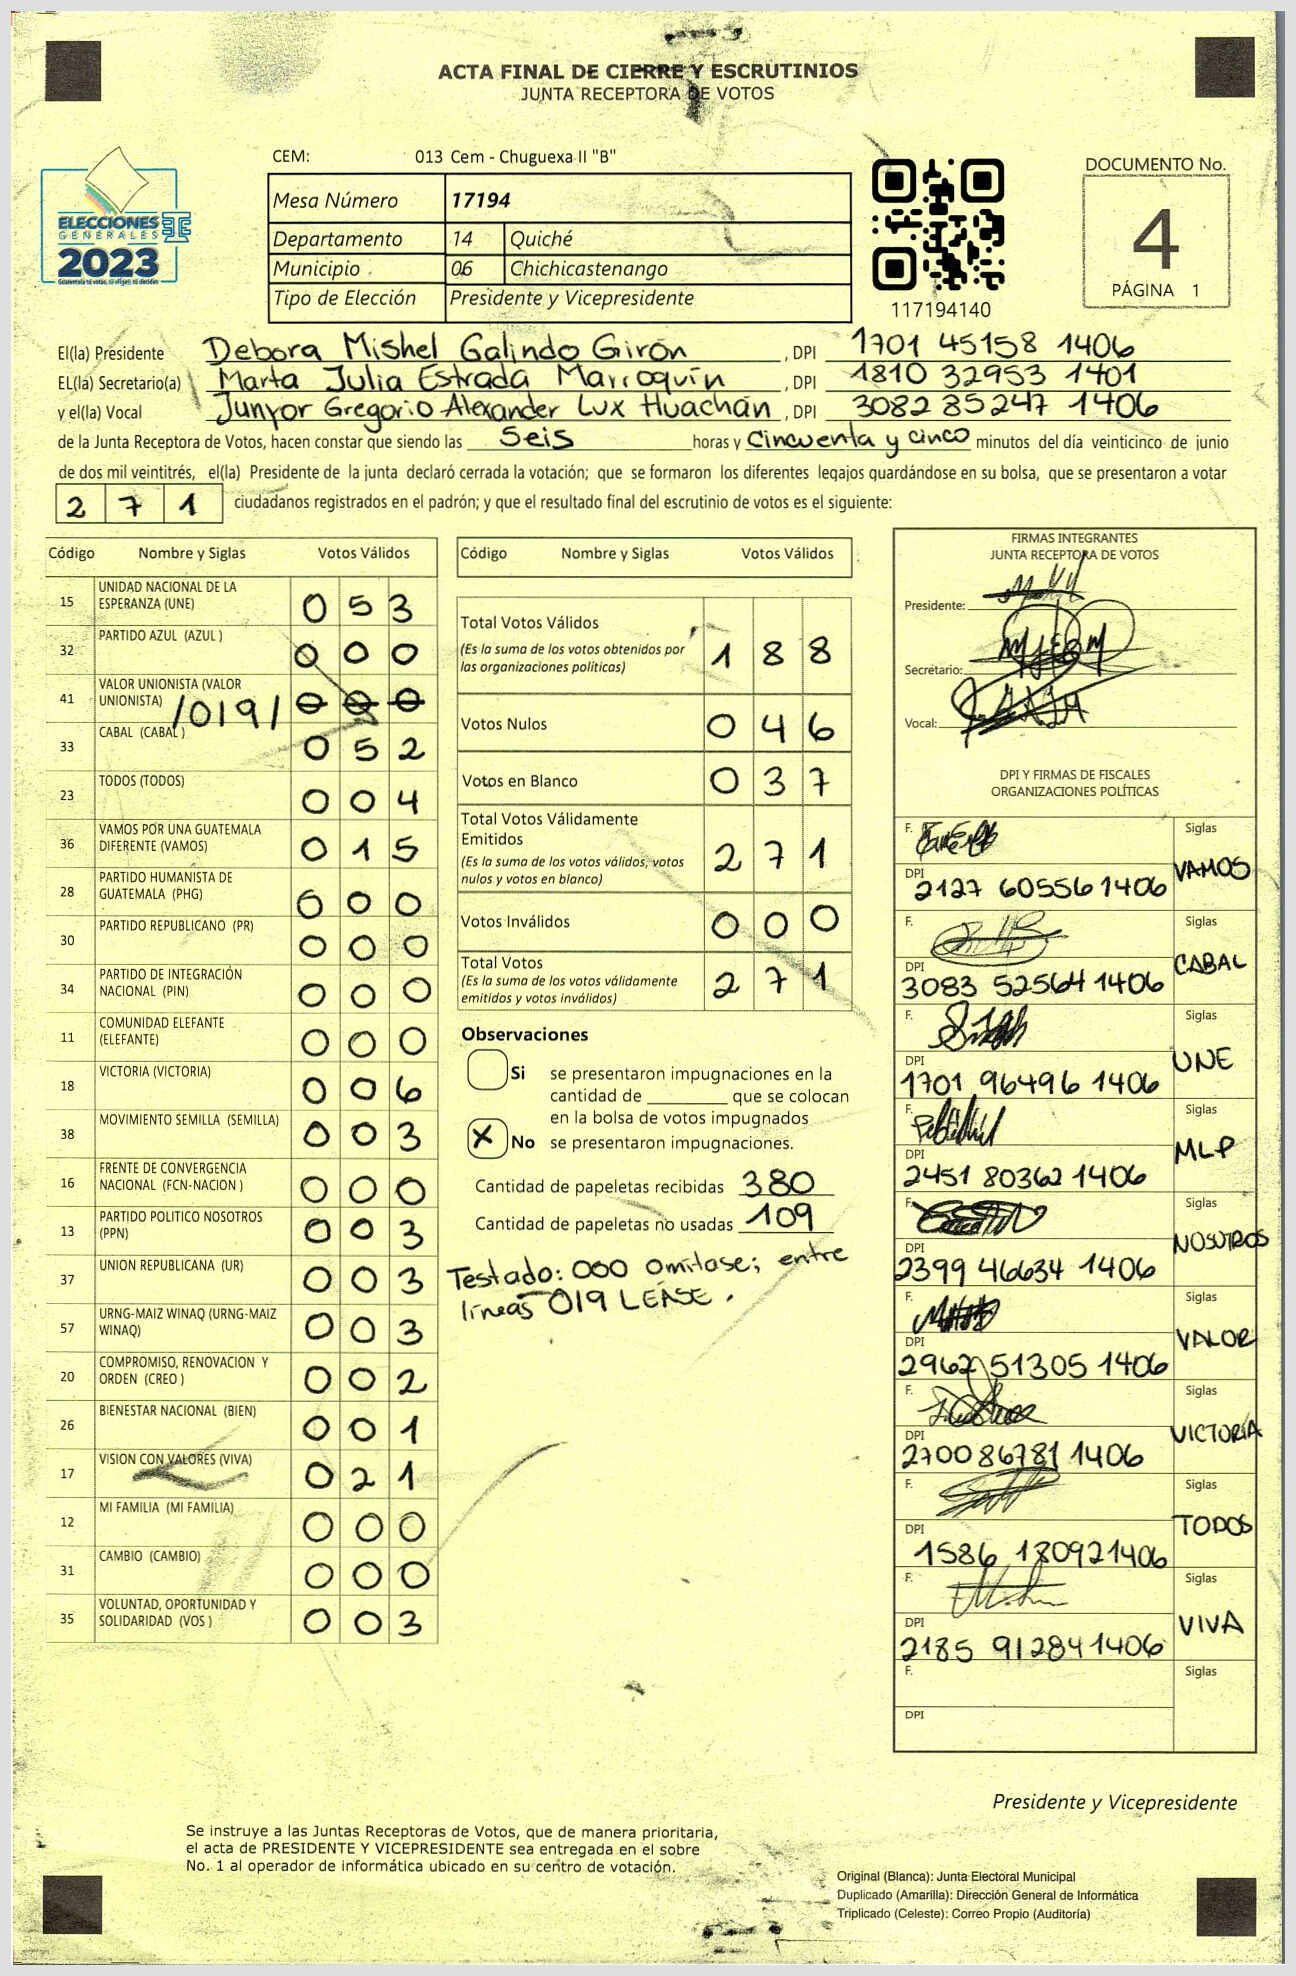 ACTA FINAL DE CIERRE Y ESCRUTINIOS
JUNTA RECEPTORA DE VOTOS
CEM: 013 Cem - Chuguexa II "B"
ELECCIONES
GENERALES
2023
Guatemala tú votas, tú eliges, tú decides
Mesa Número 17194
Departamento 14 Quiché
Municipio 06 Chichicastenango
Tipo de Elección Presidente y Vicepresidente
117194140
DOCUMENTO No.
4
PÁGINA 1
El(la) Presidente Debora Mishel Galindo Girón, DPI 1701 45158 1406
EL(la) Secretario(a) Marta Julia Estrada Marroquín, DPI 1810 32953 1401
y el(la) Vocal Junyor Gregorio Alexander Lux Huachán, DPI 3082 85247 1406
de la Junta Receptora de Votos, hacen constar que siendo las Seis horas y Cincuenta y cinco minutos del día veinticinco de junio
de dos mil veintitrés, el(la) Presidente de la junta declaró cerrada la votación; que se formaron los diferentes legajos guardándose en su bolsa, que se presentaron a votar
2 7 1 ciudadanos registrados en el padrón; y que el resultado final del escrutinio de votos es el siguiente:
Código Nombre y Siglas Votos Válidos
15 UNIDAD NACIONAL DE LA ESPERANZA (UNE) 0 5 3
32 PARTIDO AZUL (AZUL ) 0 0 0
41 VALOR UNIONISTA (VALOR UNIONISTA) /019/ 0 0 0
33 CABAL (CABAL ) 0 5 2
23 TODOS (TODOS) 0 0 4
36 VAMOS POR UNA GUATEMALA DIFERENTE (VAMOS) 0 1 5
28 PARTIDO HUMANISTA DE GUATEMALA (PHG) 0 0 0
30 PARTIDO REPUBLICANO (PR) 0 0 0
34 PARTIDO DE INTEGRACIÓN NACIONAL (PIN) 0 0 0
11 COMUNIDAD ELEFANTE (ELEFANTE) 0 0 0
18 VICTORIA (VICTORIA) 0 0 6
38 MOVIMIENTO SEMILLA (SEMILLA) 0 0 3
16 FRENTE DE CONVERGENCIA NACIONAL (FCN-NACION ) 0 0 0
13 PARTIDO POLITICO NOSOTROS (PPN) 0 0 3
37 UNION REPUBLICANA (UR) 0 0 3
57 URNG-MAIZ WINAQ (URNG-MAIZ WINAQ) 0 0 3
20 COMPROMISO, RENOVACION Y ORDEN (CREO ) 0 0 2
26 BIENESTAR NACIONAL (BIEN) 0 0 1
17 VISION CON VALORES (VIVA) 0 2 1
12 MI FAMILIA (MI FAMILIA) 0 0 0
31 CAMBIO (CAMBIO) 0 0 0
35 VOLUNTAD, OPORTUNIDAD Y SOLIDARIDAD (VOS ) 0 0 3
Código Nombre y Siglas Votos Válidos
Total Votos Válidos 1 8 8
(Es la suma de los votos obtenidos por
las organizaciones políticas)
Votos Nulos 0 4 6
Votos en Blanco 0 3 7
Total Votos Válidamente
Emitidos 2 7 1
(Es la suma de los votos válidos, votos
nulos y votos en blanco)
Votos Inválidos 0 0 0
Total Votos 2 7 1
(Es la suma de los votos válidamente
emitidos y votos inválidos)
Observaciones
Si se presentaron impugnaciones en la
cantidad de ________ que se colocan
en la bolsa de votos impugnados
X No se presentaron impugnaciones.
Cantidad de papeletas recibidas 380
Cantidad de papeletas no usadas 109
Testado: 000 omitase; entre
líneas 019 LEASE.
FIRMAS INTEGRANTES
JUNTA RECEPTORA DE VOTOS
Presidente:
Secretario:
Vocal:
DPI Y FIRMAS DE FISCALES
ORGANIZACIONES POLÍTICAS
F. Siglas
DPI 2127 60556 1406 VAMOS
F. Siglas
DPI 3083 52564 1406 CABAL
F. Siglas
DPI 1701 96496 1406 UNE
F. Siglas
DPI 2451 80362 1406 MLP
F. Siglas
DPI 2399 46634 1406 NOSOTROS
F. Siglas
DPI 2962 51305 1406 VALOR
F. Siglas
DPI 2700 86781 1406 VICTORIA
F. Siglas
DPI 1586 18092 1406 TODOS
F. Siglas
DPI 2185 91284 1406 VIVA
F. Siglas
DPI
Presidente y Vicepresidente
Se instruye a las Juntas Receptoras de Votos, que de manera prioritaria,
el acta de PRESIDENTE Y VICEPRESIDENTE sea entregada en el sobre
No. 1 al operador de informática ubicado en su centro de votación.
Original (Blanca): Junta Electoral Municipal
Duplicado (Amarilla): Dirección General de Informática
Triplicado (Celeste): Correo Propio (Auditoría)